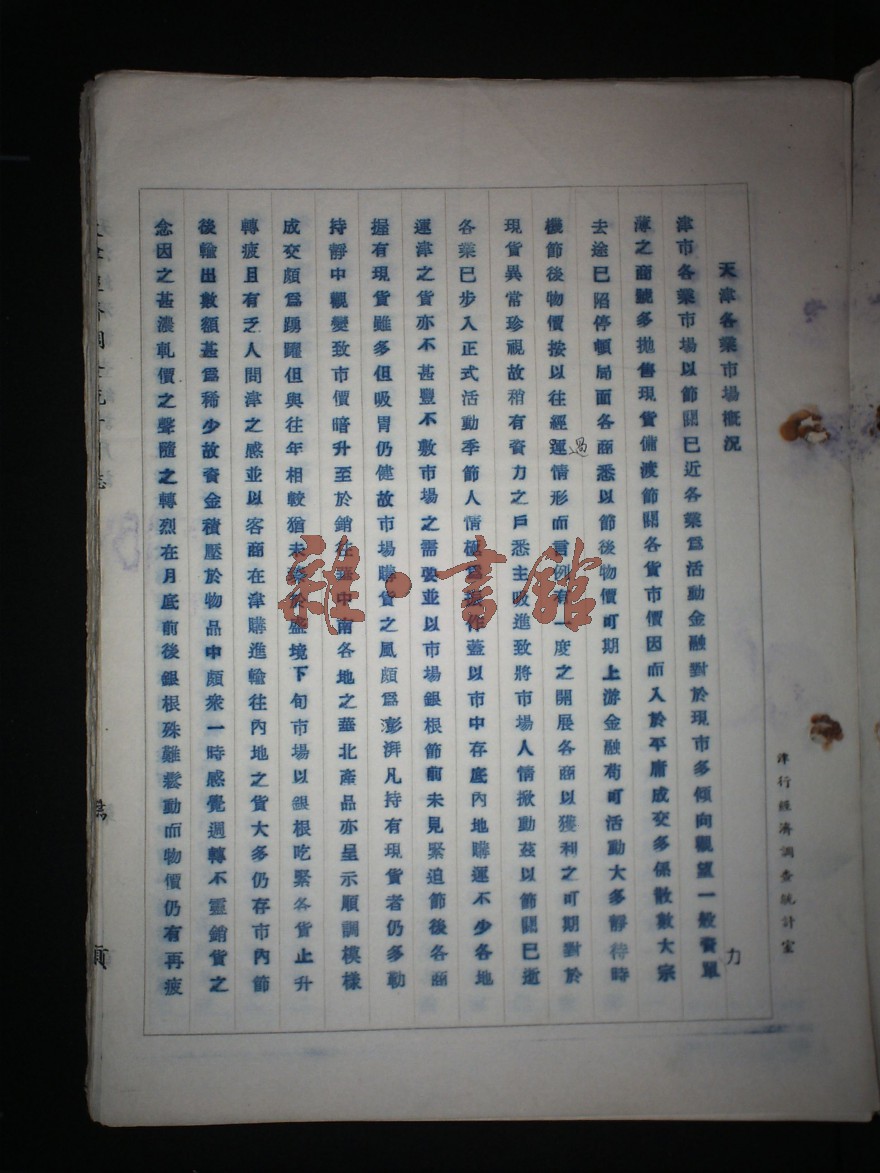 津行經濟調查統計室
天津各業市場概況
津市各業市場以節關已近各業爲活動金融對於現市多傾向觀望一般資單力
薄之商號多拋售現貨備渡節關各貨市價因而入於平庸成交多係散數大宗
去途已陷停頓局面各商悉以節後物價可期上游金融苟可活動大多靜待時
機節後物價按以往經運過情形而言例有一度之開展各商以獲利之可期對於
現貨異常珍視故稍有資力之戶悉主吸進致將市場人情掀動茲以節關已逝
各業已步入正式活動季節人情極爲振作蓋以市中存底內地購運不少各地
運津之貨亦不甚豐不敷市場之需要並以市場銀根節前未見緊迫節後各商
握有現貨雖多但吸胃仍健故市場購貨之風頗爲澎湃凡持有現貨者仍多勒
持靜中觀變致市價暗升至於銷往華中南各地之華北產品亦呈示順調模樣
成交頗爲踴躍但與往年相較猶未臻於盛境下旬市場以銀根吃緊各貨止升
轉疲且有乏人問津之感並以客商在津購進輸往內地之貨大多仍存市內節
後輸出數額甚爲稀少故資金積壓於物品中頗衆一時感覺週轉不靈銷貨之
念因之甚濃軋價之聲隨之轉烈在月底前後銀根殊難鬆動而物價仍有再疲
雜·書館
頁